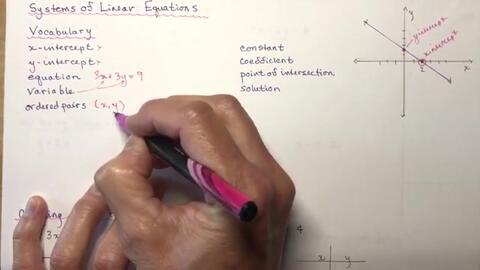 Systems of Linear Equations
Vocabulary
x-intercept
y-intercept
equation 3x + 3y = 9
variable
ordered pairs (x, y)
constant
coefficient
point of intersection
solution
y
y intercept
x intercept
x
3x
4
x y